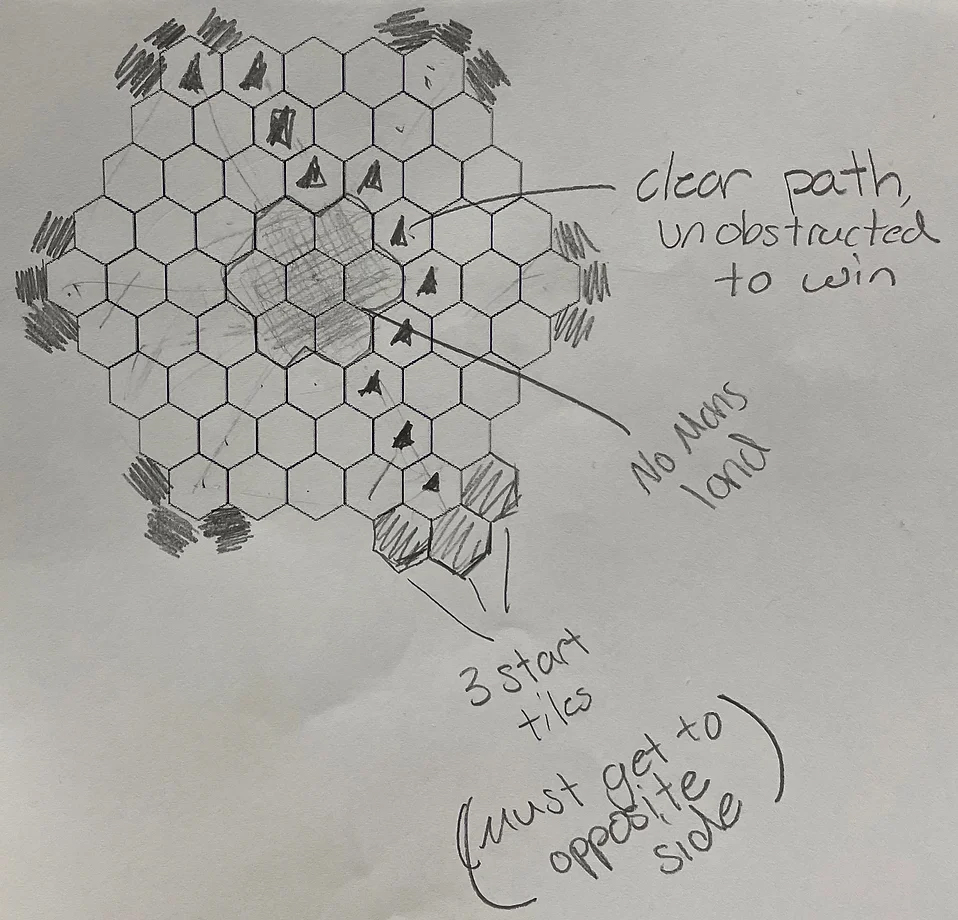 clear path,
unobstructed
to win
No Mans
land
3 start
tiles
(must get to
opposite
side)